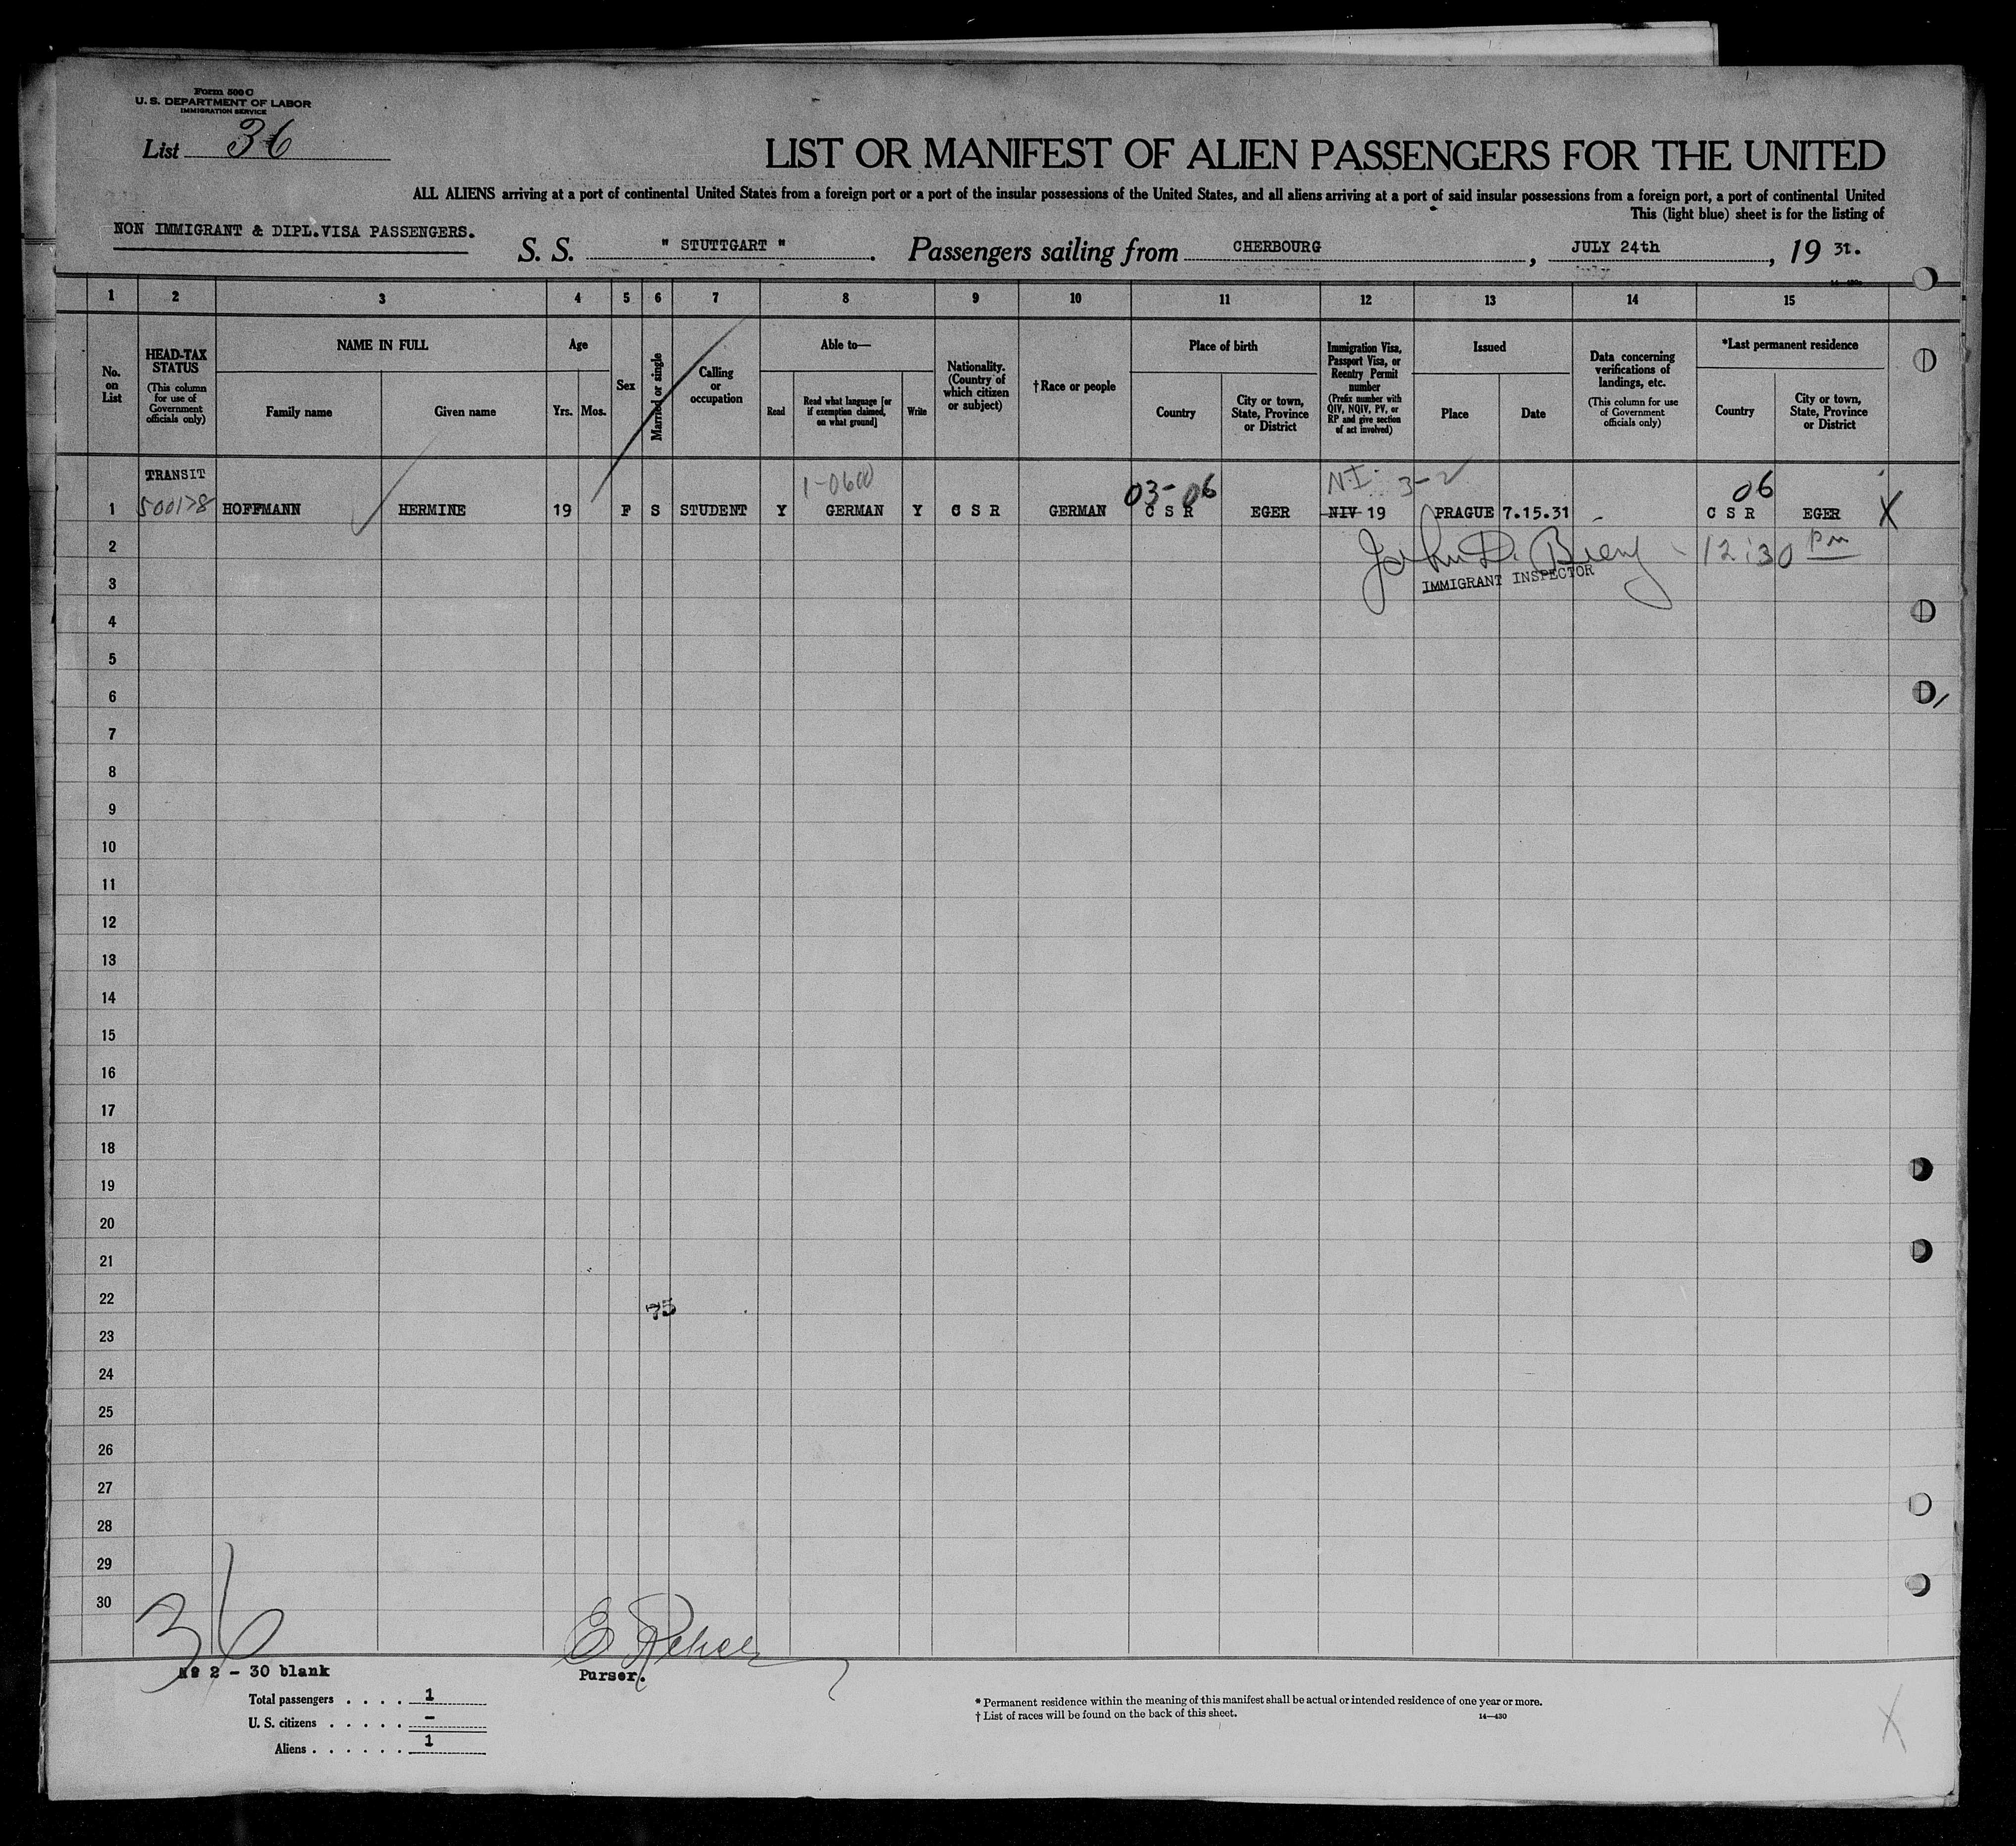 Form 500 C
U. S. DEPARTMENT OF LABOR
IMMIGRATION SERVICE
List 36
LIST OR MANIFEST OF ALIEN PASSENGERS FOR THE UNITED
ALL ALIENS arriving at a port of continental United States from a foreign port or a port of the insular possessions of the United States, and all aliens arriving at a port of said insular possessions from a foreign port, a port of continental United
This (light blue) sheet is for the listing of
NON IMMIGRANT & DIPL.VISA PASSENGERS.
S. S. " STUTTGART ". Passengers sailing from CHERBOURG, JULY 24th, 19 31.
1 2 3 4 5 6 7 8 9 10 11 12 13 14 15
No. on List
HEAD-TAX STATUS
(This column for use of Government officials only)
NAME IN FULL
Family name
Given name
Age
Yrs. Mos.
Sex
Married or single
Calling or occupation
Able to—
Read
Read what language [or if exemption claimed, on what ground]
Write
Nationality. (Country of which citizen or subject)
†Race or people
Place of birth
Country
City or town, State, Province or District
Immigration Visa, Passport Visa, or Reentry Permit number
(Prefix number with QIV, NQIV, PV, or RP and give section of act involved)
Issued
Place
Date
Data concerning verifications of landings, etc.
(This column for use of Government officials only)
*Last permanent residence
Country
City or town, State, Province or District
TRANSIT 1-0600 03-06 N.I. 3-2 06
1 500178 HOFFMANN HERMINE 19 F S STUDENT Y GERMAN Y C S R GERMAN C S R EGER NIV 19 PRAGUE 7.15.31 C S R EGER X
2 John D. 12:30 pm
3 IMMIGRANT INSPECTOR
4
5
6
7
8
9
10
11
12
13
14
15
16
17
18
19
20
21
22 75
23
24
25
26
27
28
29
30
36
No 2 - 30 blank
Purser.
Total passengers . . . . 1
U. S. citizens . . . . . -
Aliens . . . . . . 1
* Permanent residence within the meaning of this manifest shall be actual or intended residence of one year or more.
† List of races will be found on the back of this sheet.
14—430
X